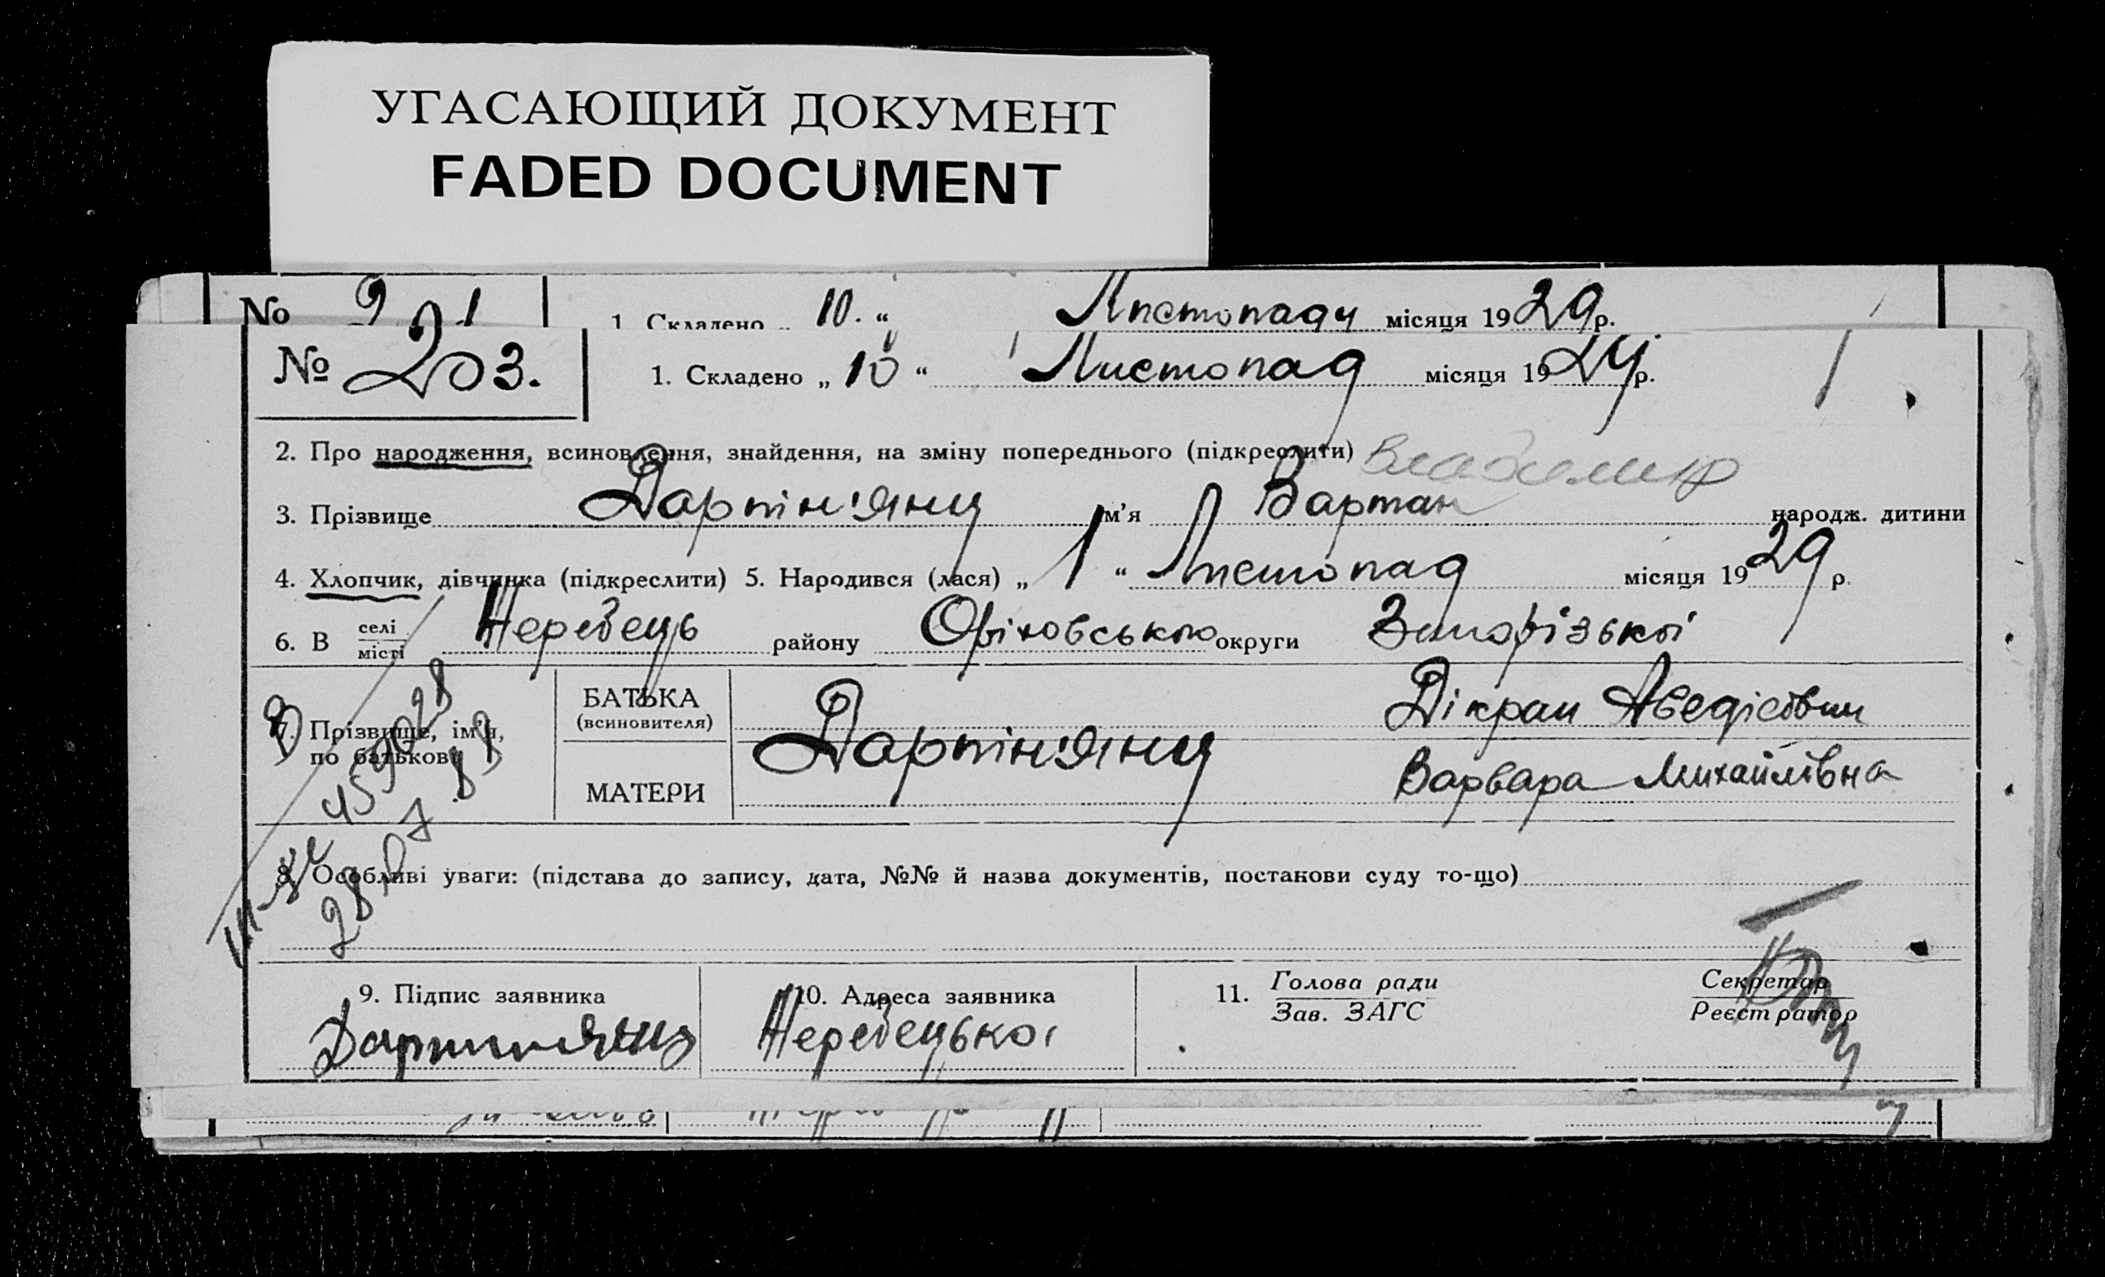 УГАСАЮЩИЙ ДОКУМЕНТ
FADED DOCUMENT
№ 221 1. Складено „ 10. “ Листопаду місяця 1929р.
№ 203. 1. Складено „ 10 “ Листопад місяця 1929р.
2. Про народження, всиновлення, знайдення, на зміну попереднього (підкреслити) Владимир
3. Прізвище Дартін'янц ім'я Вартан народж. дитини
4. Хлопчик, дівчинка (підкреслити) 5. Народився (лася) „ 1 “ Листопад місяця 1929 р.
6. В селі місті Жеребець району Оріховського округи Запорізької
7. Прізвище, ім'я, по батькові
БАТЬКА (всиновителя) Дікран Аведісович
Дартін'янц
МАТЕРИ Варвара Михайлівна
28.07.88
8. Особливі уваги: (підстава до запису, дата, №№ й назва документів, постанови суду то-що)
9. Підпис заявника 10. Адреса заявника 11. Голова ради Зав. ЗАГС Секретар Реєстратор
Дартинянц Жеребецької